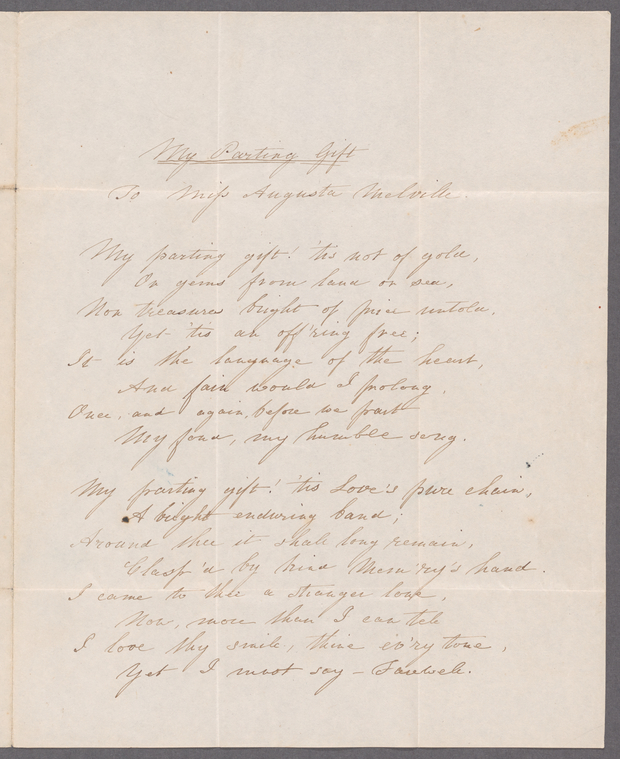 My Parting Gift
To Miss Augusta Melville.
My parting gift! 'tis not of gold,
Or gems from land or sea,
Nor treasures bright of price untold,
Yet 'tis an off'ring free;
It is the language of the heart,
And fain would I prolong,
Once, and again, before we part
My fond, my humble song.
My parting gift! 'tis Love's pure chain,
A bright enduring band;
Around thee it shall long remain,
Clasp'd by kind Mem'ry's hand.
I came to thee a stranger lone,
Now, more than I can tell
I love thy smile, thine ev'ry tone,
Yet I must say – Farewell.